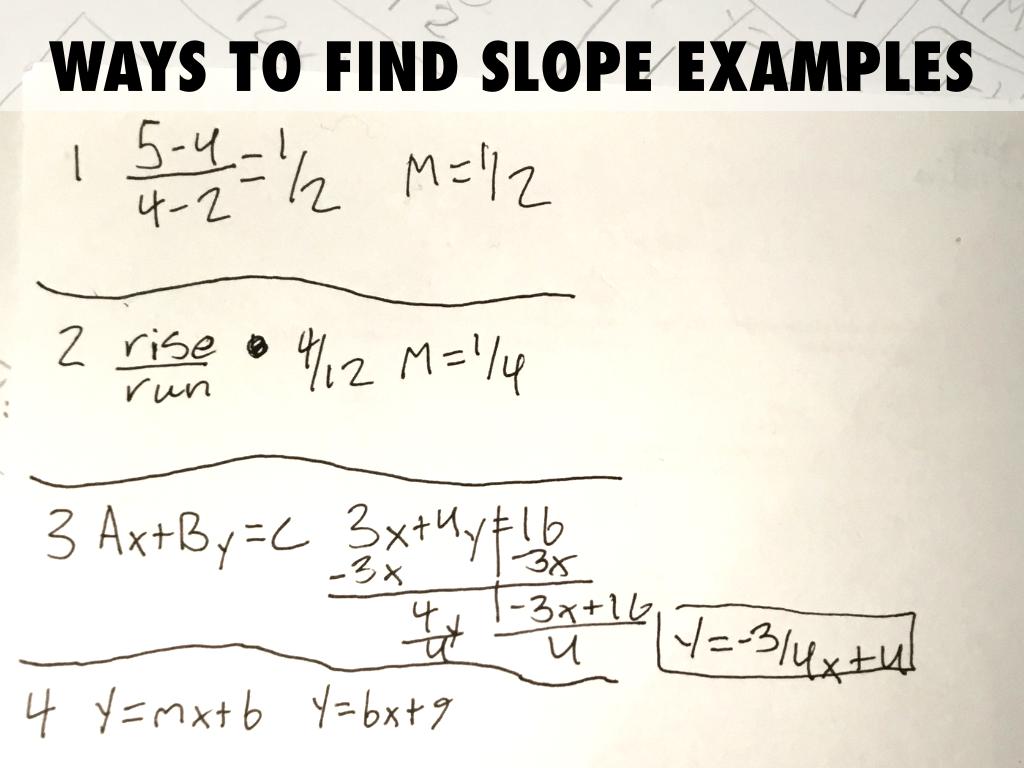 WAYS TO FIND SLOPE EXAMPLES
1 5-4 / 4-2 = 1/2 M=1/2
2 rise / run • 4/12 M=1/4
3 Ax+By=C 3x+4y=16
-3x -3x
4y -3x+16
4 4 y=-3/4x+4
4 y=mx+b y=6x+9